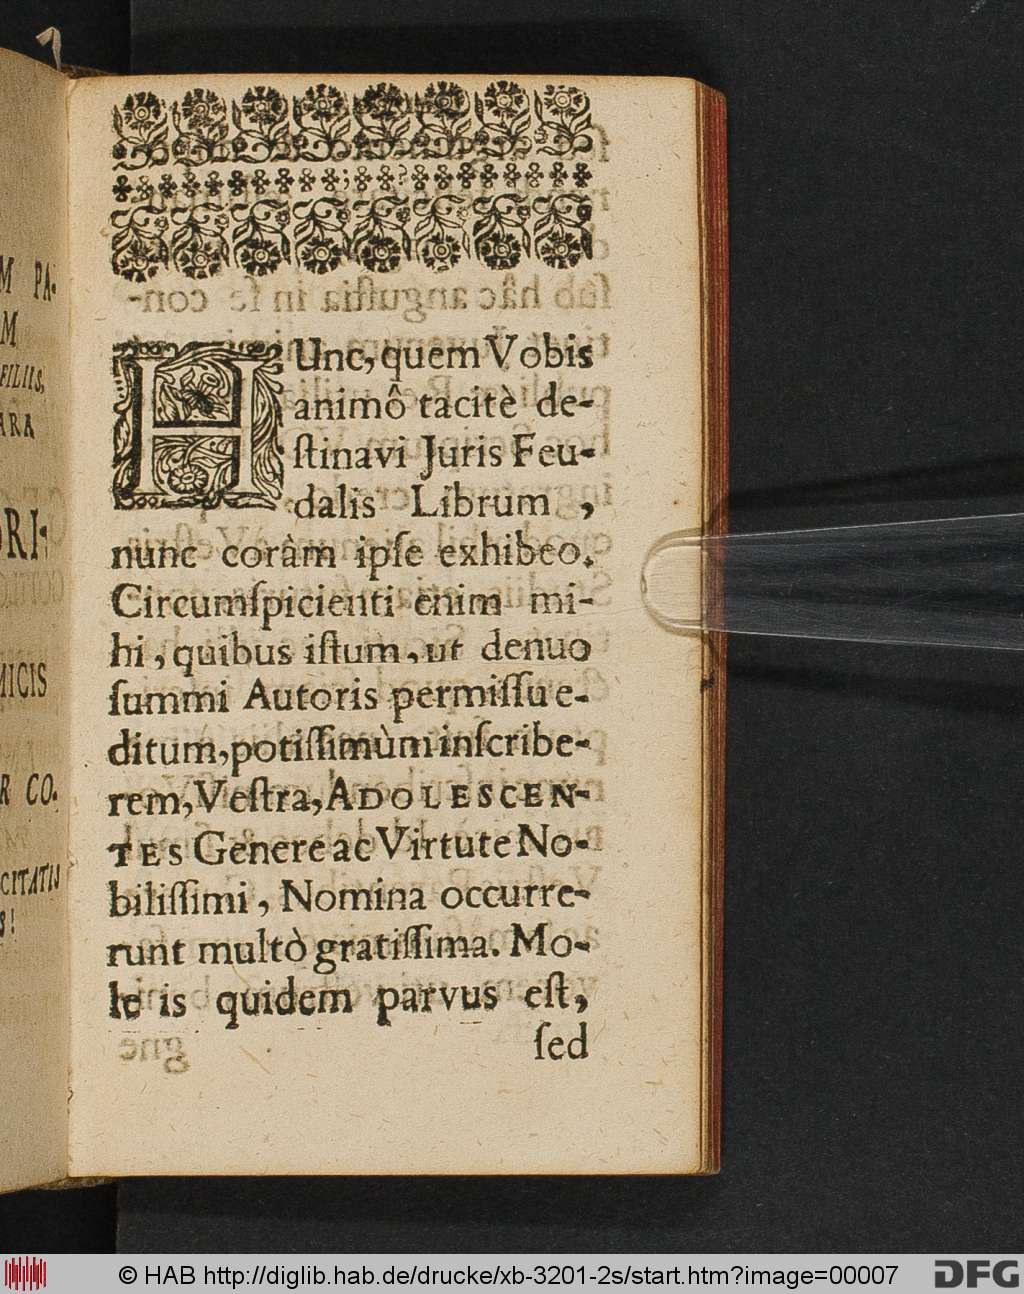 HUnc, quem Vobis
animô tacitè de-
ſtinavi Juris Feu-
dalis Librum ,
nunc coràm ipſe exhibeo.
Circumſpicienti enim mi-
hi, quibus iſtum, ut denuo
ſummi Autoris permiſſu e-
ditum, potiſſimùm inſcribe-
rem, Veſtra, ADOLESCEN-
TES Genere ac Virtute No-
biliſſimi, Nomina occurre-
runt multò gratiſſima. Mo-
le is quidem parvus eſt,
ſed
M PA-
M
FILIIS,
ARA
ORI-
MICIS
R CO-
S!
© HAB http://diglib.hab.de/drucke/xb-3201-2s/start.htm?image=00007
DFG